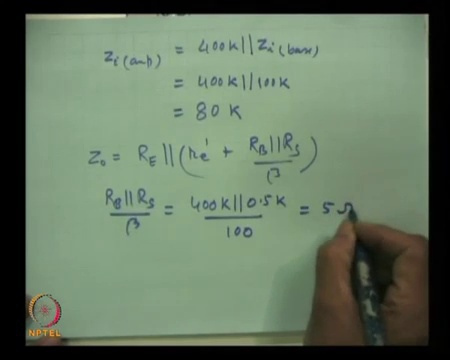 Zi(amp) = 400K||Zi(base)
= 400K||100K
= 80 K
Zo = RE||(re' + RB||RS/β)
RB||RS/β = 400K||0.5K/100 = 5 Ω
NPTEL